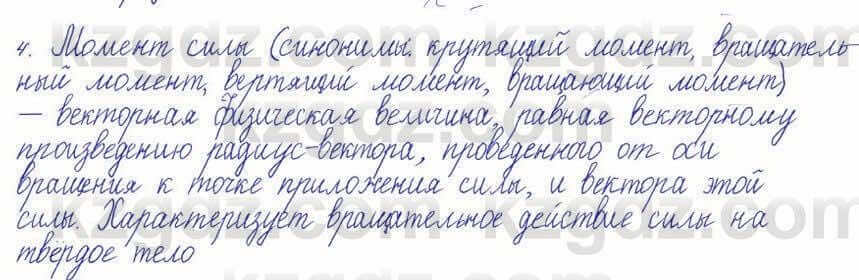 4. Момент силы (синонимы: крутящий момент, вращатель-
ный момент, вертящий момент, вращающий момент)
– векторная физическая величина, равная векторному
произведению радиус-вектора, проведенного от оси
вращения к точке приложения силы, и вектора этой
силы. Характеризует вращательное действие силы на
твёрдое тело